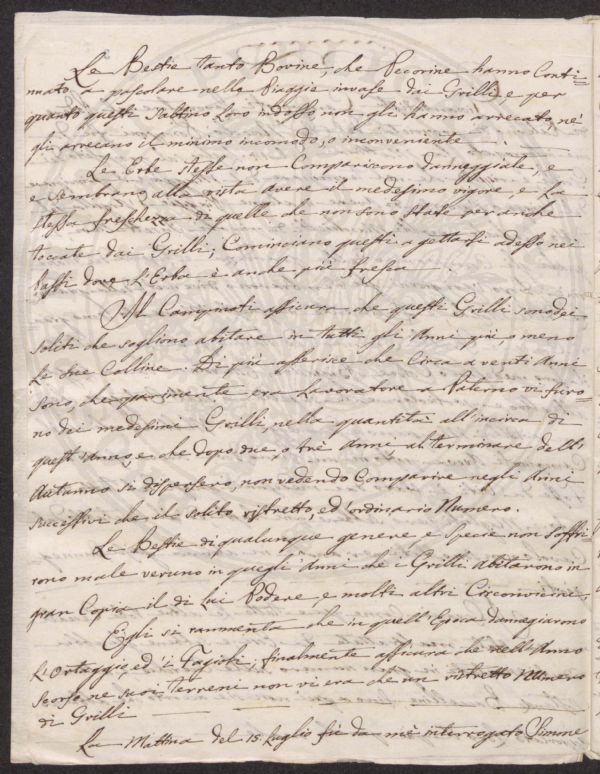 Le Bestie tanto Bovine, che Pecorine hanno Conti=
nuato a pascolare nelle Piaggie invase dai Grilli, e per
quanto questi saltino Loro indosso non gli hanno arrecato, nè
gli arrecano il minimo incomodo, o inconveniente.
Le Erbe stesse non Compariscono danneggiate, e
e sembrano alla vista avere il medesimo vigore, e La
stessa freschezza di quelle che non sono state per anche
toccate dai Grilli; Cominciano questi a gettarsi adesso nei
Passi dove L'Erba è anche più fresca.
Il Campinoti assicura che questi Grilli sono dei
soliti che sogliono abitare in tutti gli Anni più o meno
Le sue Colline. Di più asserisce che Circa a venti Anni
sono, che parimente era Lavoratore a Paterno vi furo=
no dei medesimi Grilli, nella quantità all'incirca di
quest'Anno, e che dopo due, o trè Anni, al terminare dell'
Autunno si dispersero, non vedendo Comparire negli Anni
successivi che il solito, ristretto, ed ordinario Numero.
Le Bestie di qualunque genere e specie non soffri
rono male veruno in quegli Anni che i Grilli abitarono in
gran Copia il di Lui Podere, e molti altri Circonvicini.
Egli si rammenta che in quell'Epoca danneggiarono
L'Ortaggio, ed i Fagioli; finalmente assicura che nell'Anno
scorso ne suoi terreni non vi era che un ristretto Numero
di Grilli
La Mattina del 15 Luglio fù da mè interrogato Simone